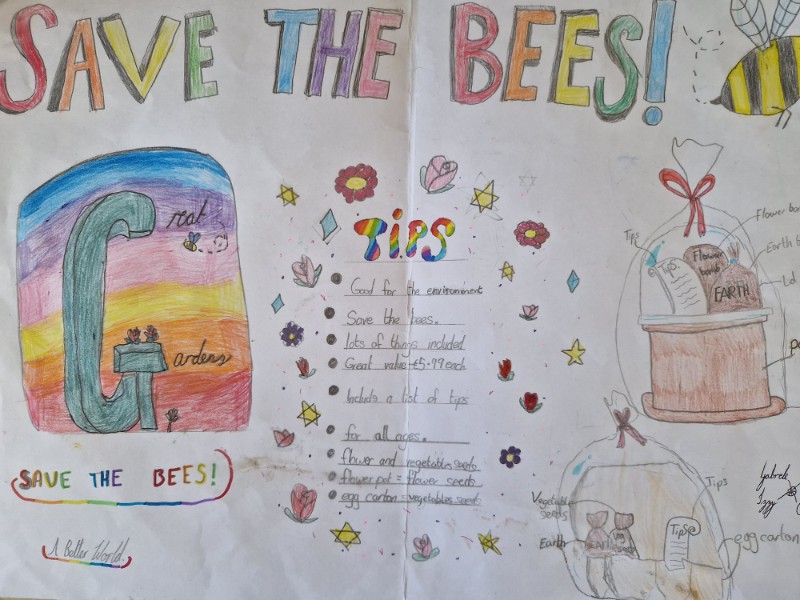 SAVE THE BEES!
Great
Gardens
SAVE THE BEES!
A Better World!
TIPS
Good for the environminent
Save the bees.
lots of things included
Great value £5.99 each
Include a list of tips
for all ages.
flower and vegetables seeds
flower pot = flower seeds
egg carton = vegetables seeds
Tips
Flower
Earth
Tips
Flower
bomb
EARTH
Tips
Vegetable
seeds
Earth
EARTH
Tips
egg carton
Izzy